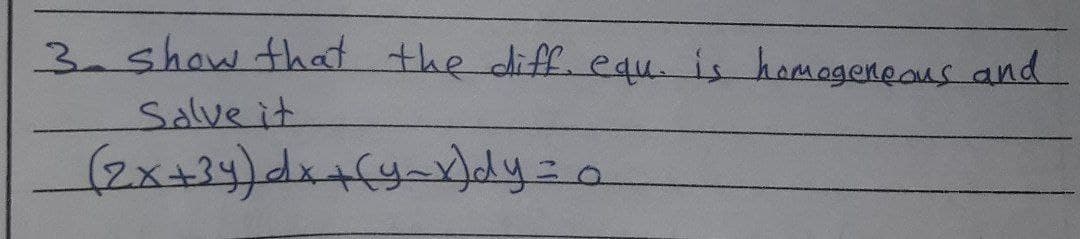 3- show that the diff. equ. is homogeneous and
Solve it
(2x+3y)dx+(y-x)dy=0